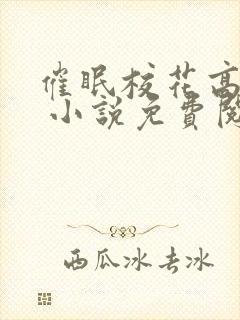 催眠校花高
小說免費閱
西瓜冰去冰